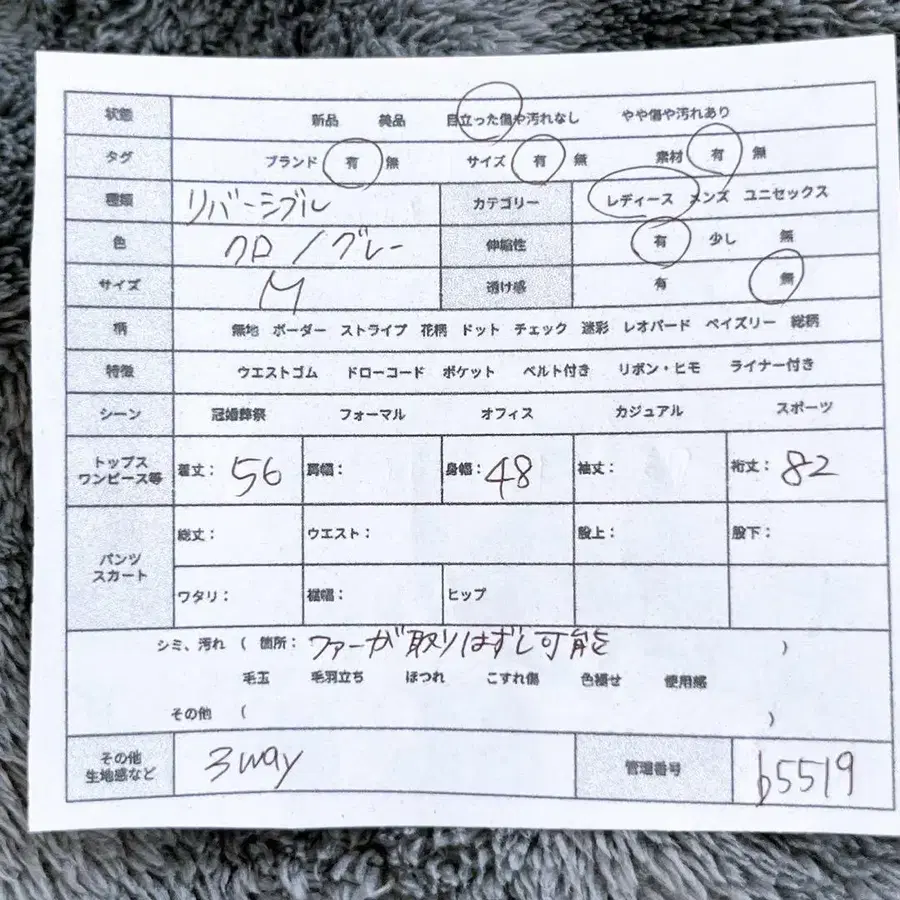 状態 新品 美品 目立った傷や汚れなし やや傷や汚れあり
タグ ブランド 有 無 サイズ 有 無 素材 有 無
種類 リバーシブル カテゴリー レディース メンズ ユニセックス
色 クロ/グレー 伸縮性 有 少し 無
サイズ M 透け感 有 無
柄 無地 ボーダー ストライプ 花柄 ドット チェック 迷彩 レオパード ペイズリー 総柄
特徴 ウエストゴム ドローコード ポケット ベルト付き リボン・ヒモ ライナー付き
シーン 冠婚葬祭 フォーマル オフィス カジュアル スポーツ
トップス
ワンピース等 着丈: 56 肩幅: 身幅: 48 袖丈: 裄丈: 82
総丈: ウエスト: 股上: 股下:
パンツ
スカート
ワタリ: 裾幅: ヒップ
シミ、汚れ ( 箇所: ファーが取りはずし可能 )
毛玉 毛羽立ち ほつれ こすれ傷 色褪せ 使用感
その他 ( )
その他
生地感など 3way 管理番号 b5519